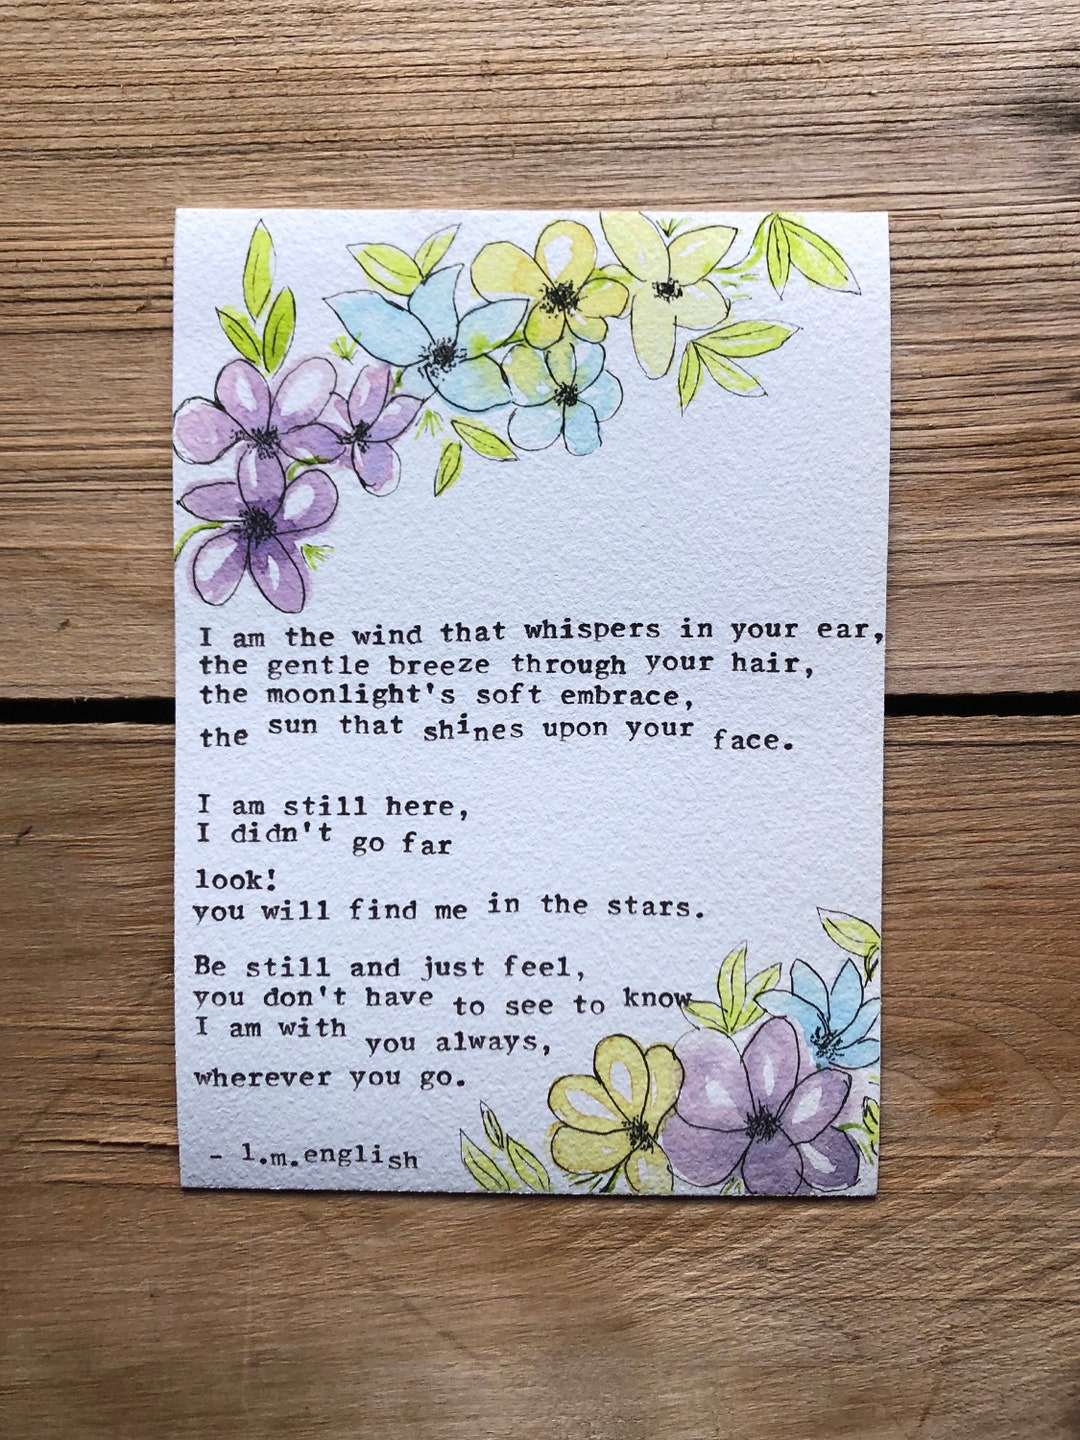 I am the wind that whispers in your ear,
the gentle breeze through your hair,
the moonlight's soft embrace,
the sun that shines upon your face.
I am still here,
I didn't go far
look!
you will find me in the stars.
Be still and just feel,
you don't have to see to know
I am with you always,
wherever you go.
- l.m.english